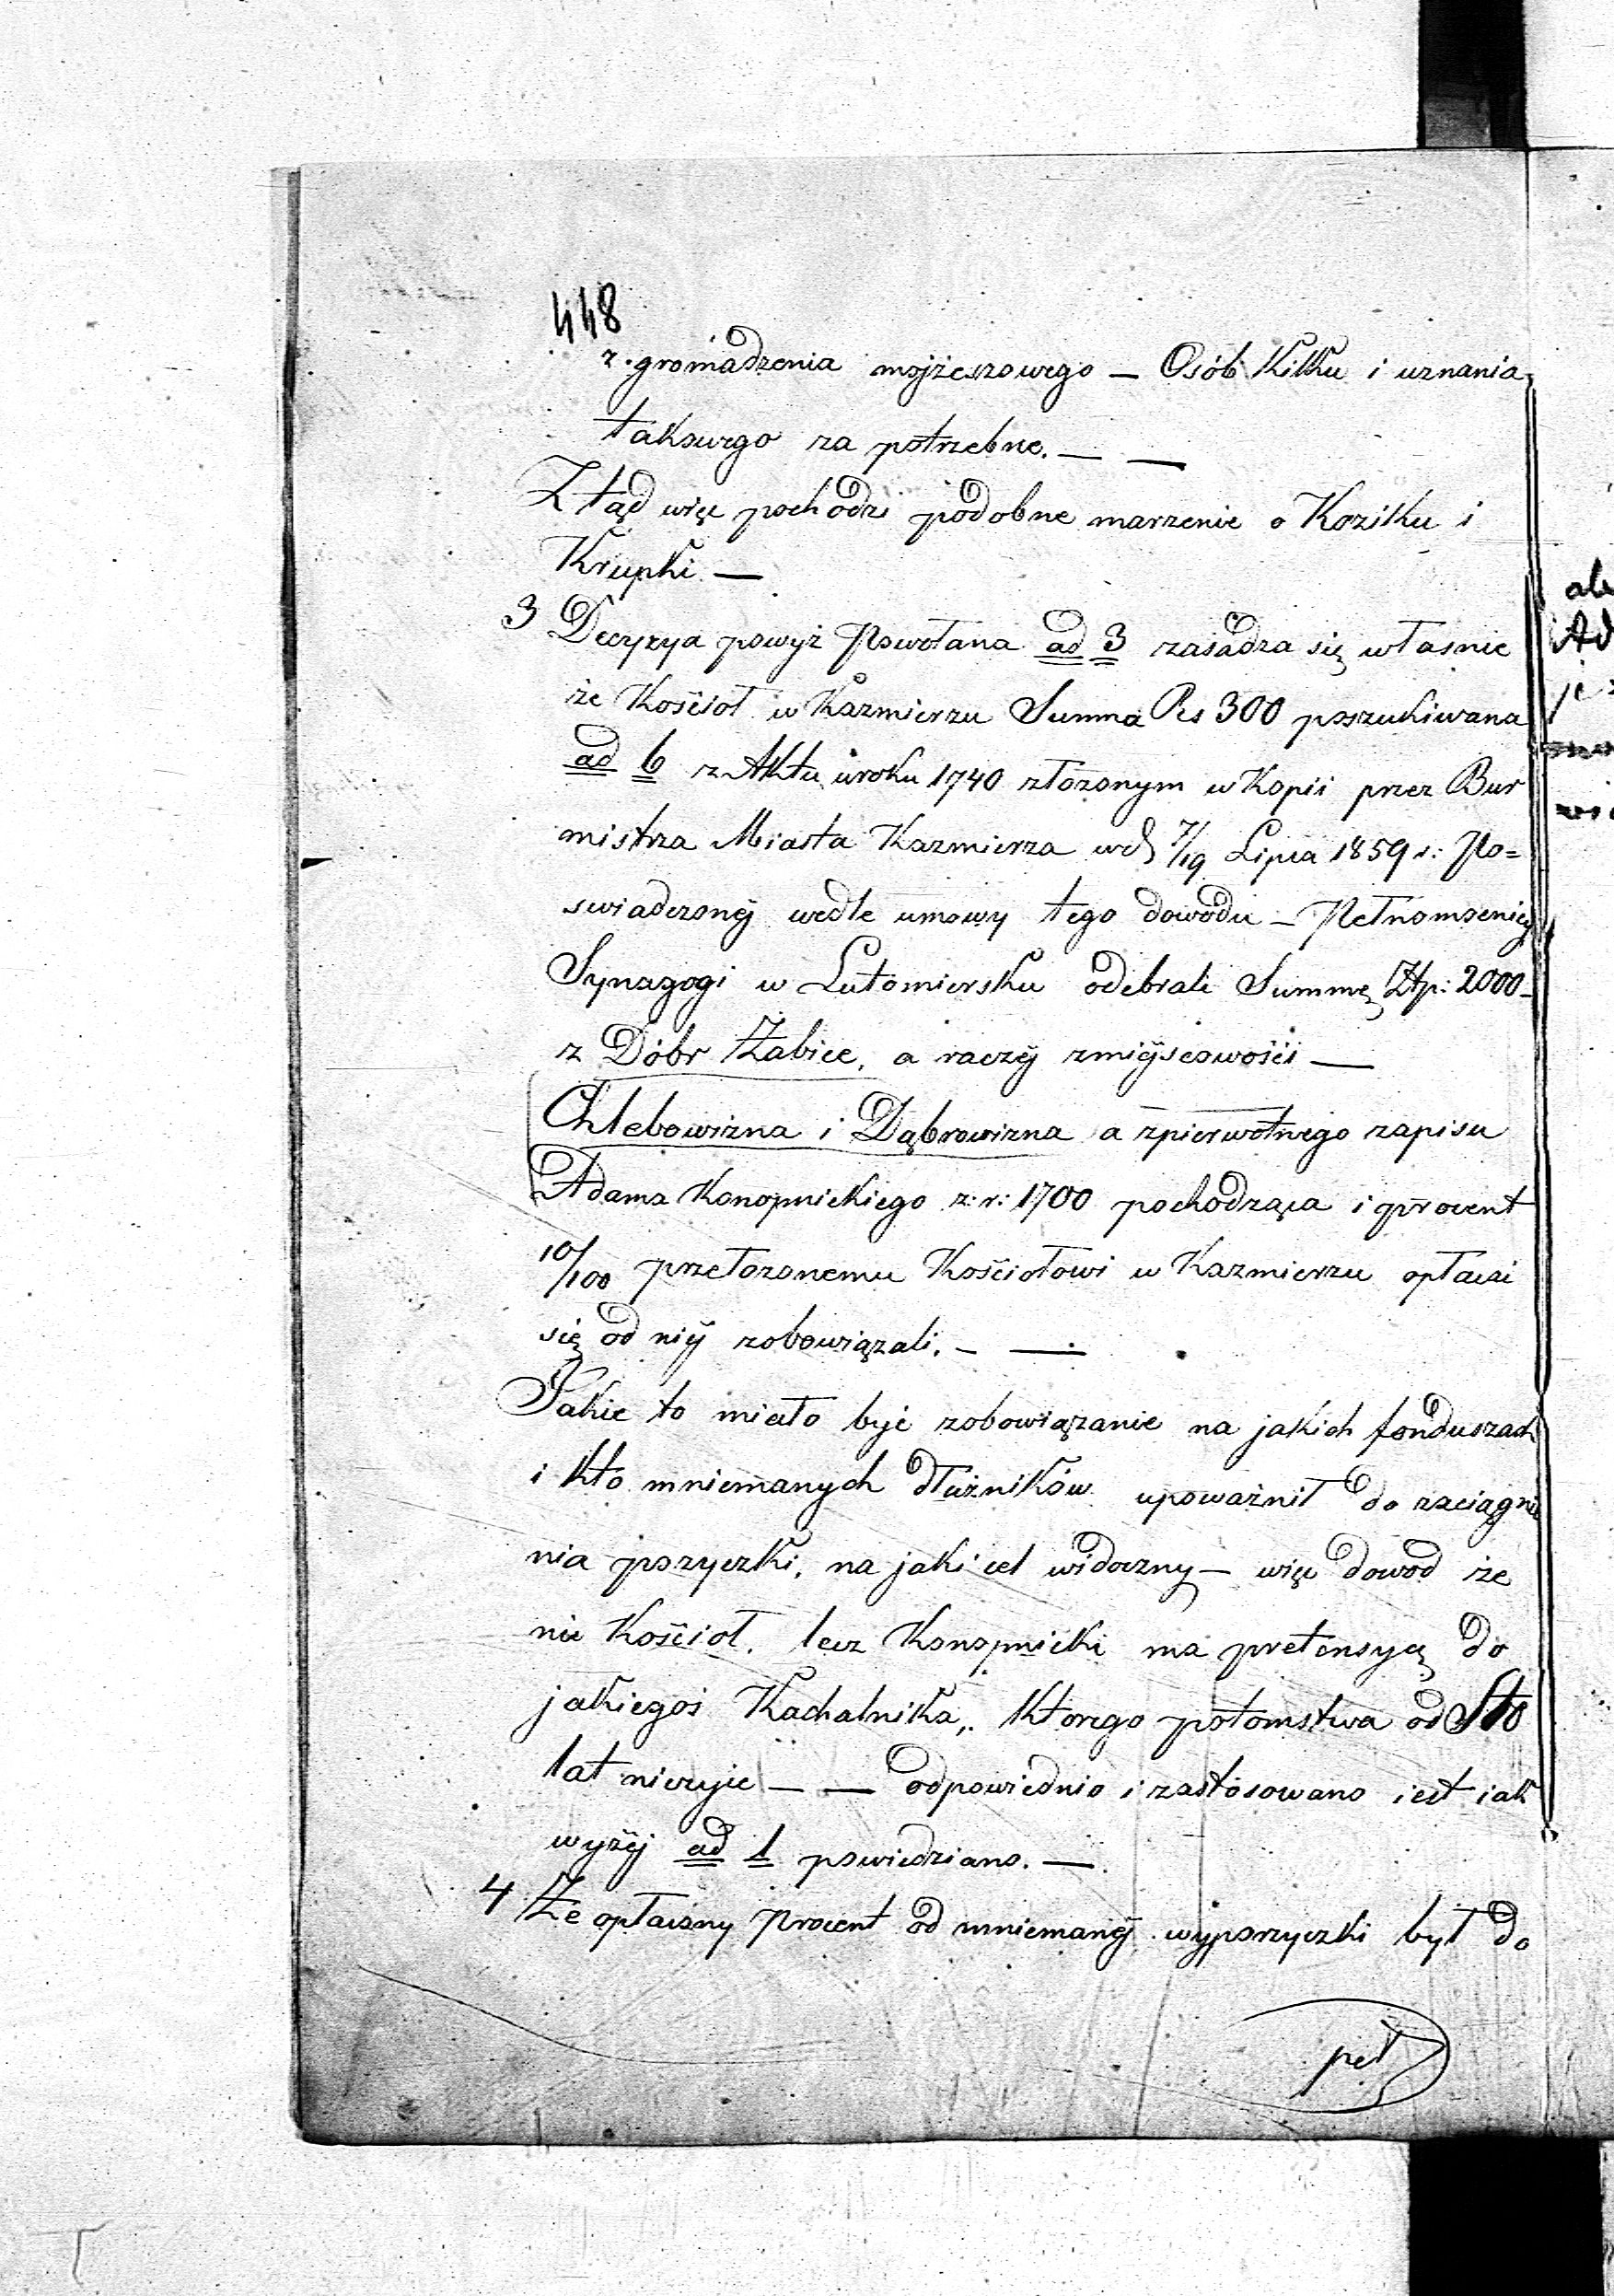 448
z.gromadzenia mojżeszowego — Osób Kilku i uznania
takowego za potrzebne. — —
Ztąd więc pochodzi podobne marzenie o Kozilku i
Krupki —
3 Decyzya powyż Powołana ad 3 zasadza się własnie
że Kościoł w Kazmierzu Summa Rs 300 poszukiwana
ad 6 z Aktu w roku 1740 złożonym w Kopii przez Bur
mistrza Miasta Kazmierza wd 7/19 Lipca 1859 r: Po=
swiadczonéj wedle umowy tego dowodu — Pełnomocnicy
Synagogi w Lutomiersku odebrali Summę Złp: 2000 —
z Dóbr Żabice, a raczéj zmiéjscowości —
Chlebowizna i Dąbrowizna a zpierwotnego zapisu
Adama Konopnickiego z: r: 1700 pochodząca i procent
10/100 przełożonemu Kościołowi w Kazmierzu opłacać
się od niéj zobowiązali. — —
Jakie to miało być zobowiązanie na jakich fonduszach
i kto mniemanych dłużników upoważnił do zaciągnie
nia pozyczki, na jaki cel widoczny — więc dowod że
nie Kościoł, lecz Konopnicki ma pretensyę do
jakiegoś Kachalnika, ktorego potomstwa od Sto
lat nieżyje — — odpowiednio i zastosowano iest iak
wyżéj ad 1 powiedziano. —
4 Że opłacany Procent od mniemanéj wypozyczki był do
pet
ale
Ad
je